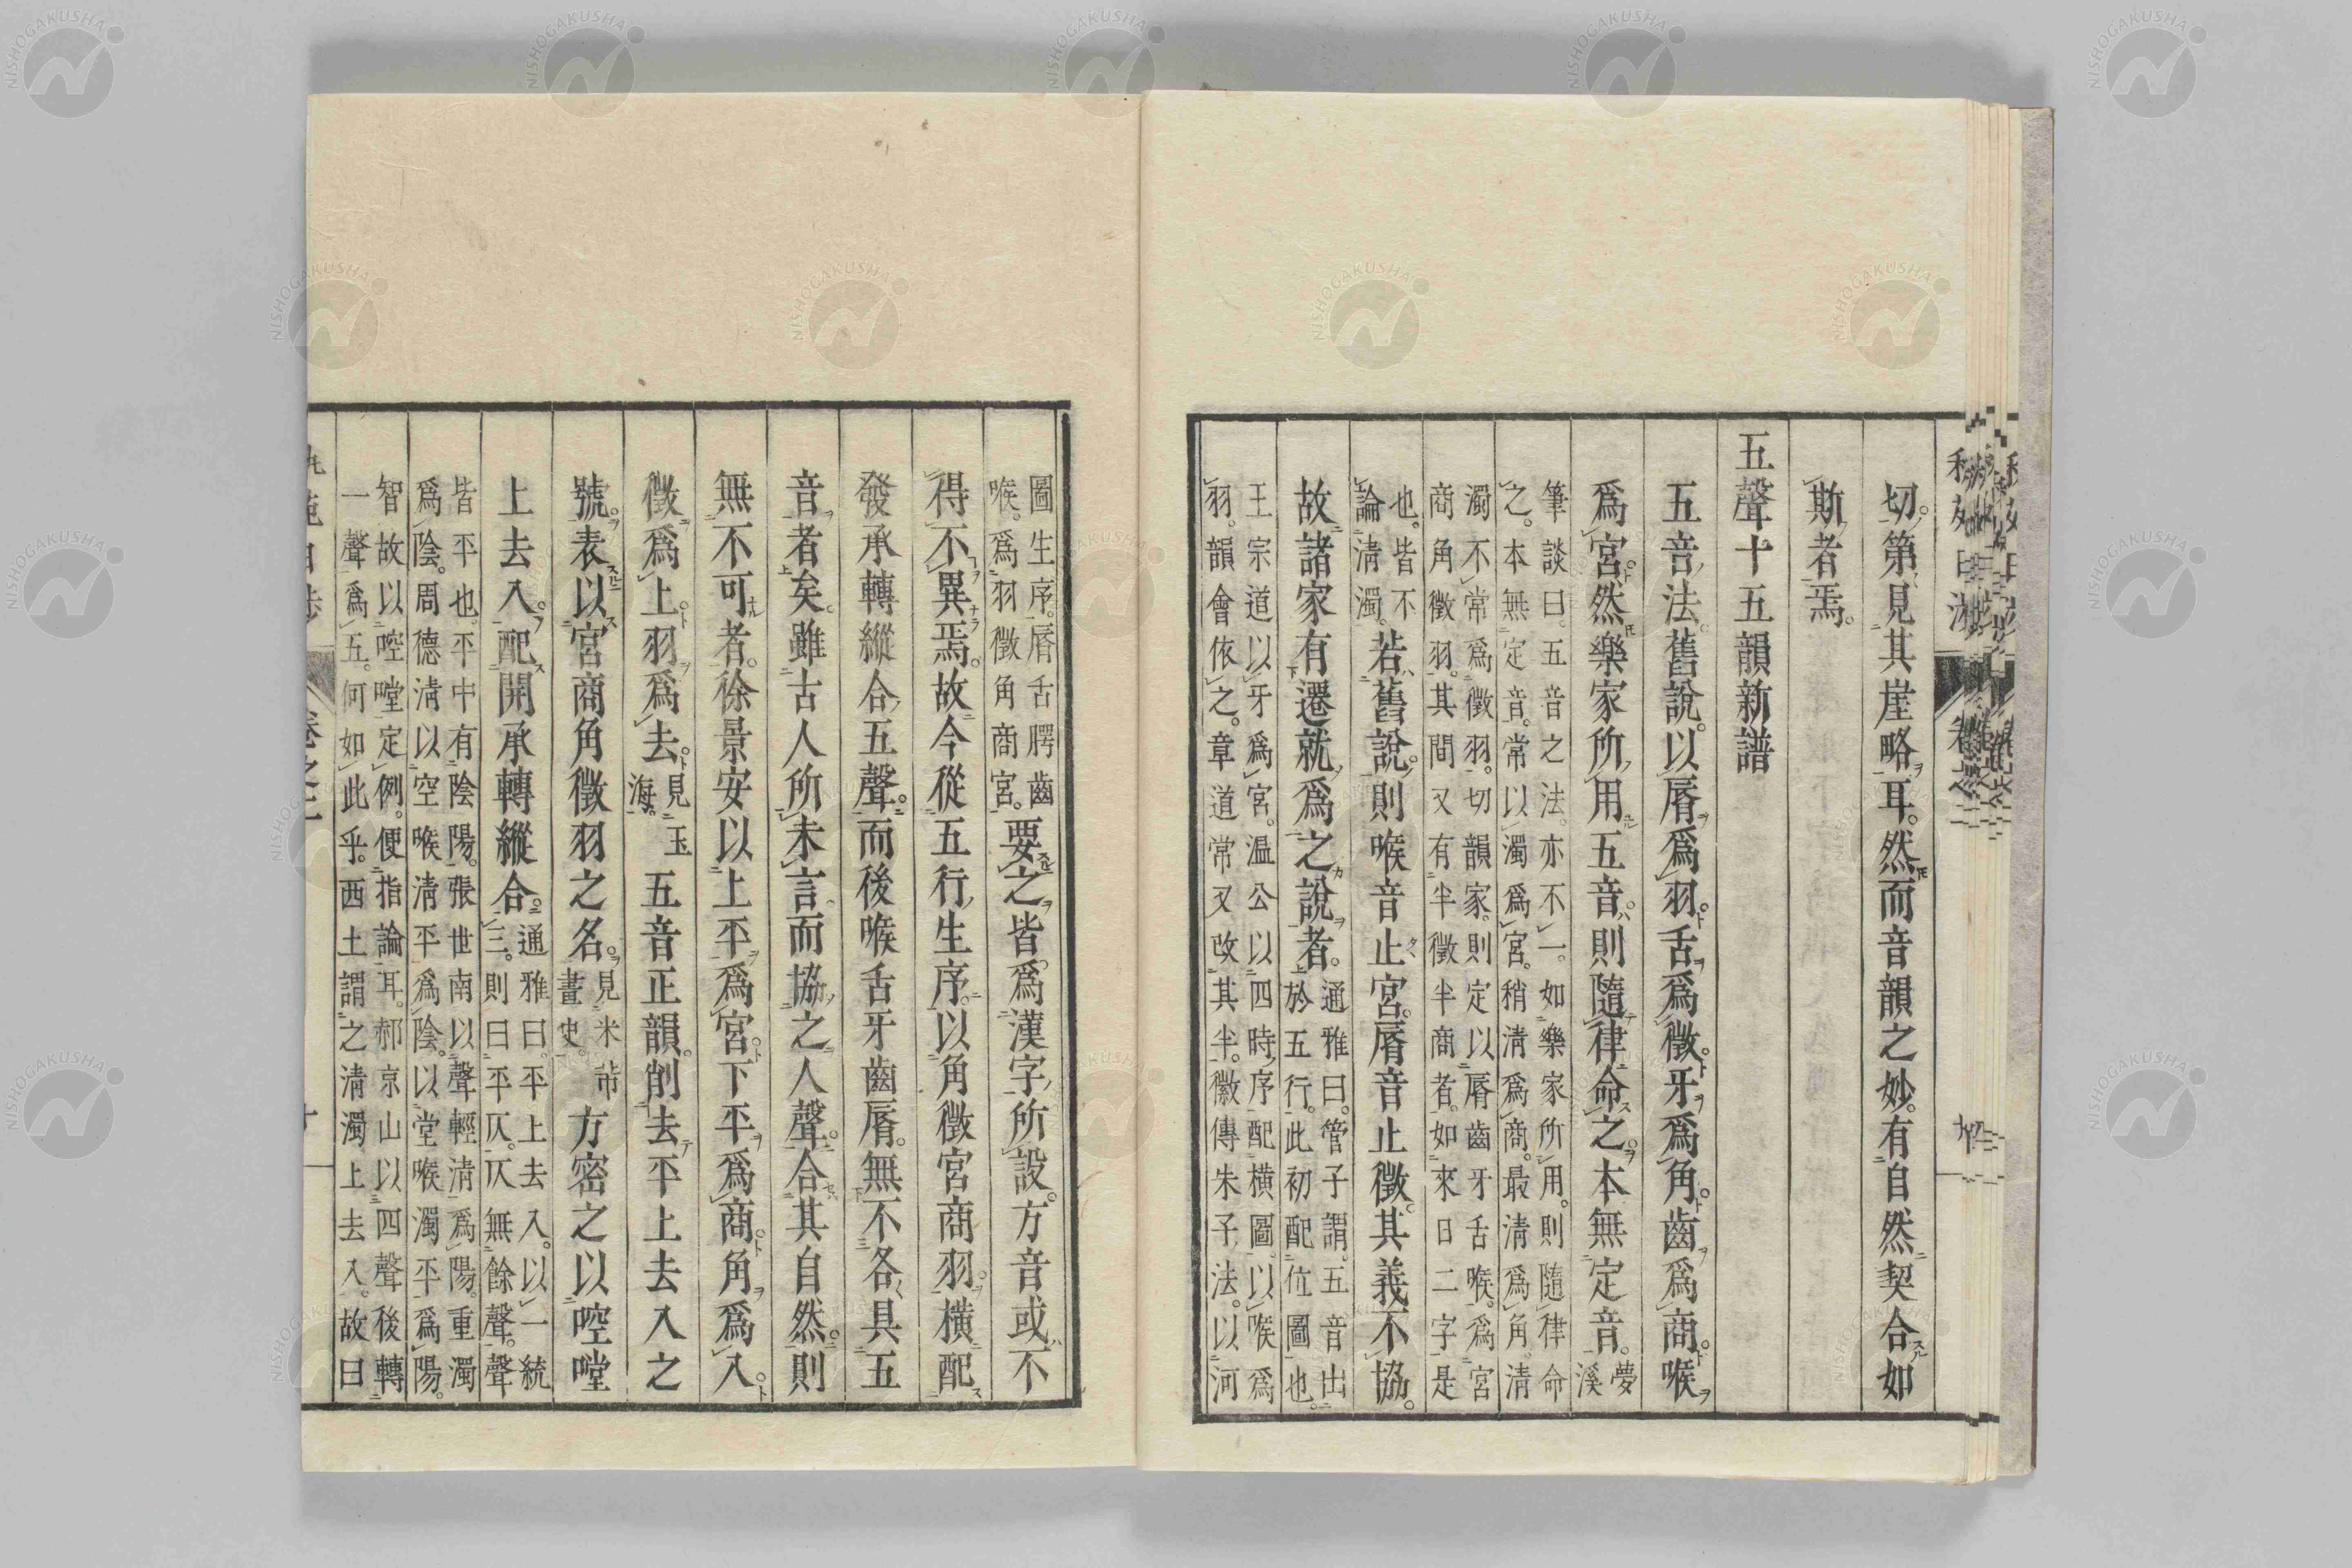 切。第見其崖略耳。然而音韻之妙。有自然契合如
斯者焉。
五聲十五韻新譜
五音法。舊說。以脣爲羽。舌爲徵。牙爲角。齒爲商。喉
爲宮。然樂家所用五音。則隨律命之。本無定音。夢溪
筆談曰。五音之法。亦不一。如樂家所用。則隨律命
之。本無定音。常以濁爲宮。稍淸爲商。最淸爲角。淸
濁不常爲徵羽。切韻家。則定以脣齒牙舌喉。爲宮
商角徵羽。其間又有半徵半商者。如來日二字是
也。皆不
論淸濁。若舊說。則喉音止宮。脣音止徵。其義不協。
故諸家有遷就爲之說者。通雅曰。管子謂。五音出
於五行。此初配位圖也。
王宗道以牙爲宮。温公以四時序配橫圖。以喉爲
羽。韻會依之。章道常又改其半。徽傳朱子法。以河
圖生序。脣舌腭齒
喉。爲羽徵角商宮。要之皆爲漢字所設。方音或不
得不異焉。故今從五行生序。以角徵宮商羽。橫配
發承轉縱合五聲。而後喉舌牙齒脣。無不各具五
音者矣。雖古人所未言。而協之人聲。合其自然。則
無不可者。徐景安以上平爲宮。下平爲商。角爲入。
徵爲上。羽爲去。見玉海。五音正韻。削去平上去入之
號。表以宮商角徵羽之名。見米芾畫史。方密之以啌嘡
上去入。配開承轉縱合。通雅曰。平上去入。以一統
三。則曰平仄。仄無餘聲。聲
皆平也。平中有陰陽。張世南以聲輕淸爲陽。重濁
爲陰。周德淸以空喉淸平爲陰。以堂喉濁平爲陽。
智故以啌嘡定例。便指論耳。郝京山以四聲後轉
一聲爲五。何如此乎。西土謂之淸濁上去入。故曰